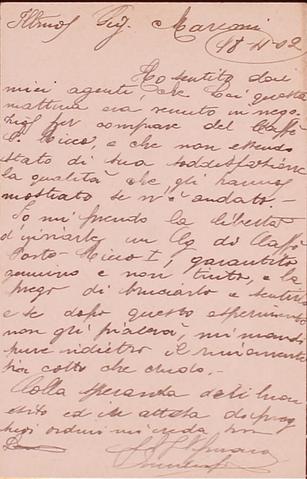 Illmo Sig. Marconi
18-11-02
Ho sentito dai
miei agenti, che Lei questa
mattina era venuto in nego-
zio per comprare del Caffè
P. Ricco, e che non essendo
stato di sua soddisfazione
la qualità che gli hanno
mostrato se n'è andato.-
Io mi prendo la libertà
d'inviarle un Kg di Caffè
Porto-Ricco I, garantito
genuino e non tinto, e la
prego di bruciarlo e sentirlo
e se dopo questo esperimento
non gli piacerà, mi mandi
pure indietro il rimanente
sia cotto che crudo.-
Colla speranza del buon
esito ed in attesa dei
ordini mi creda